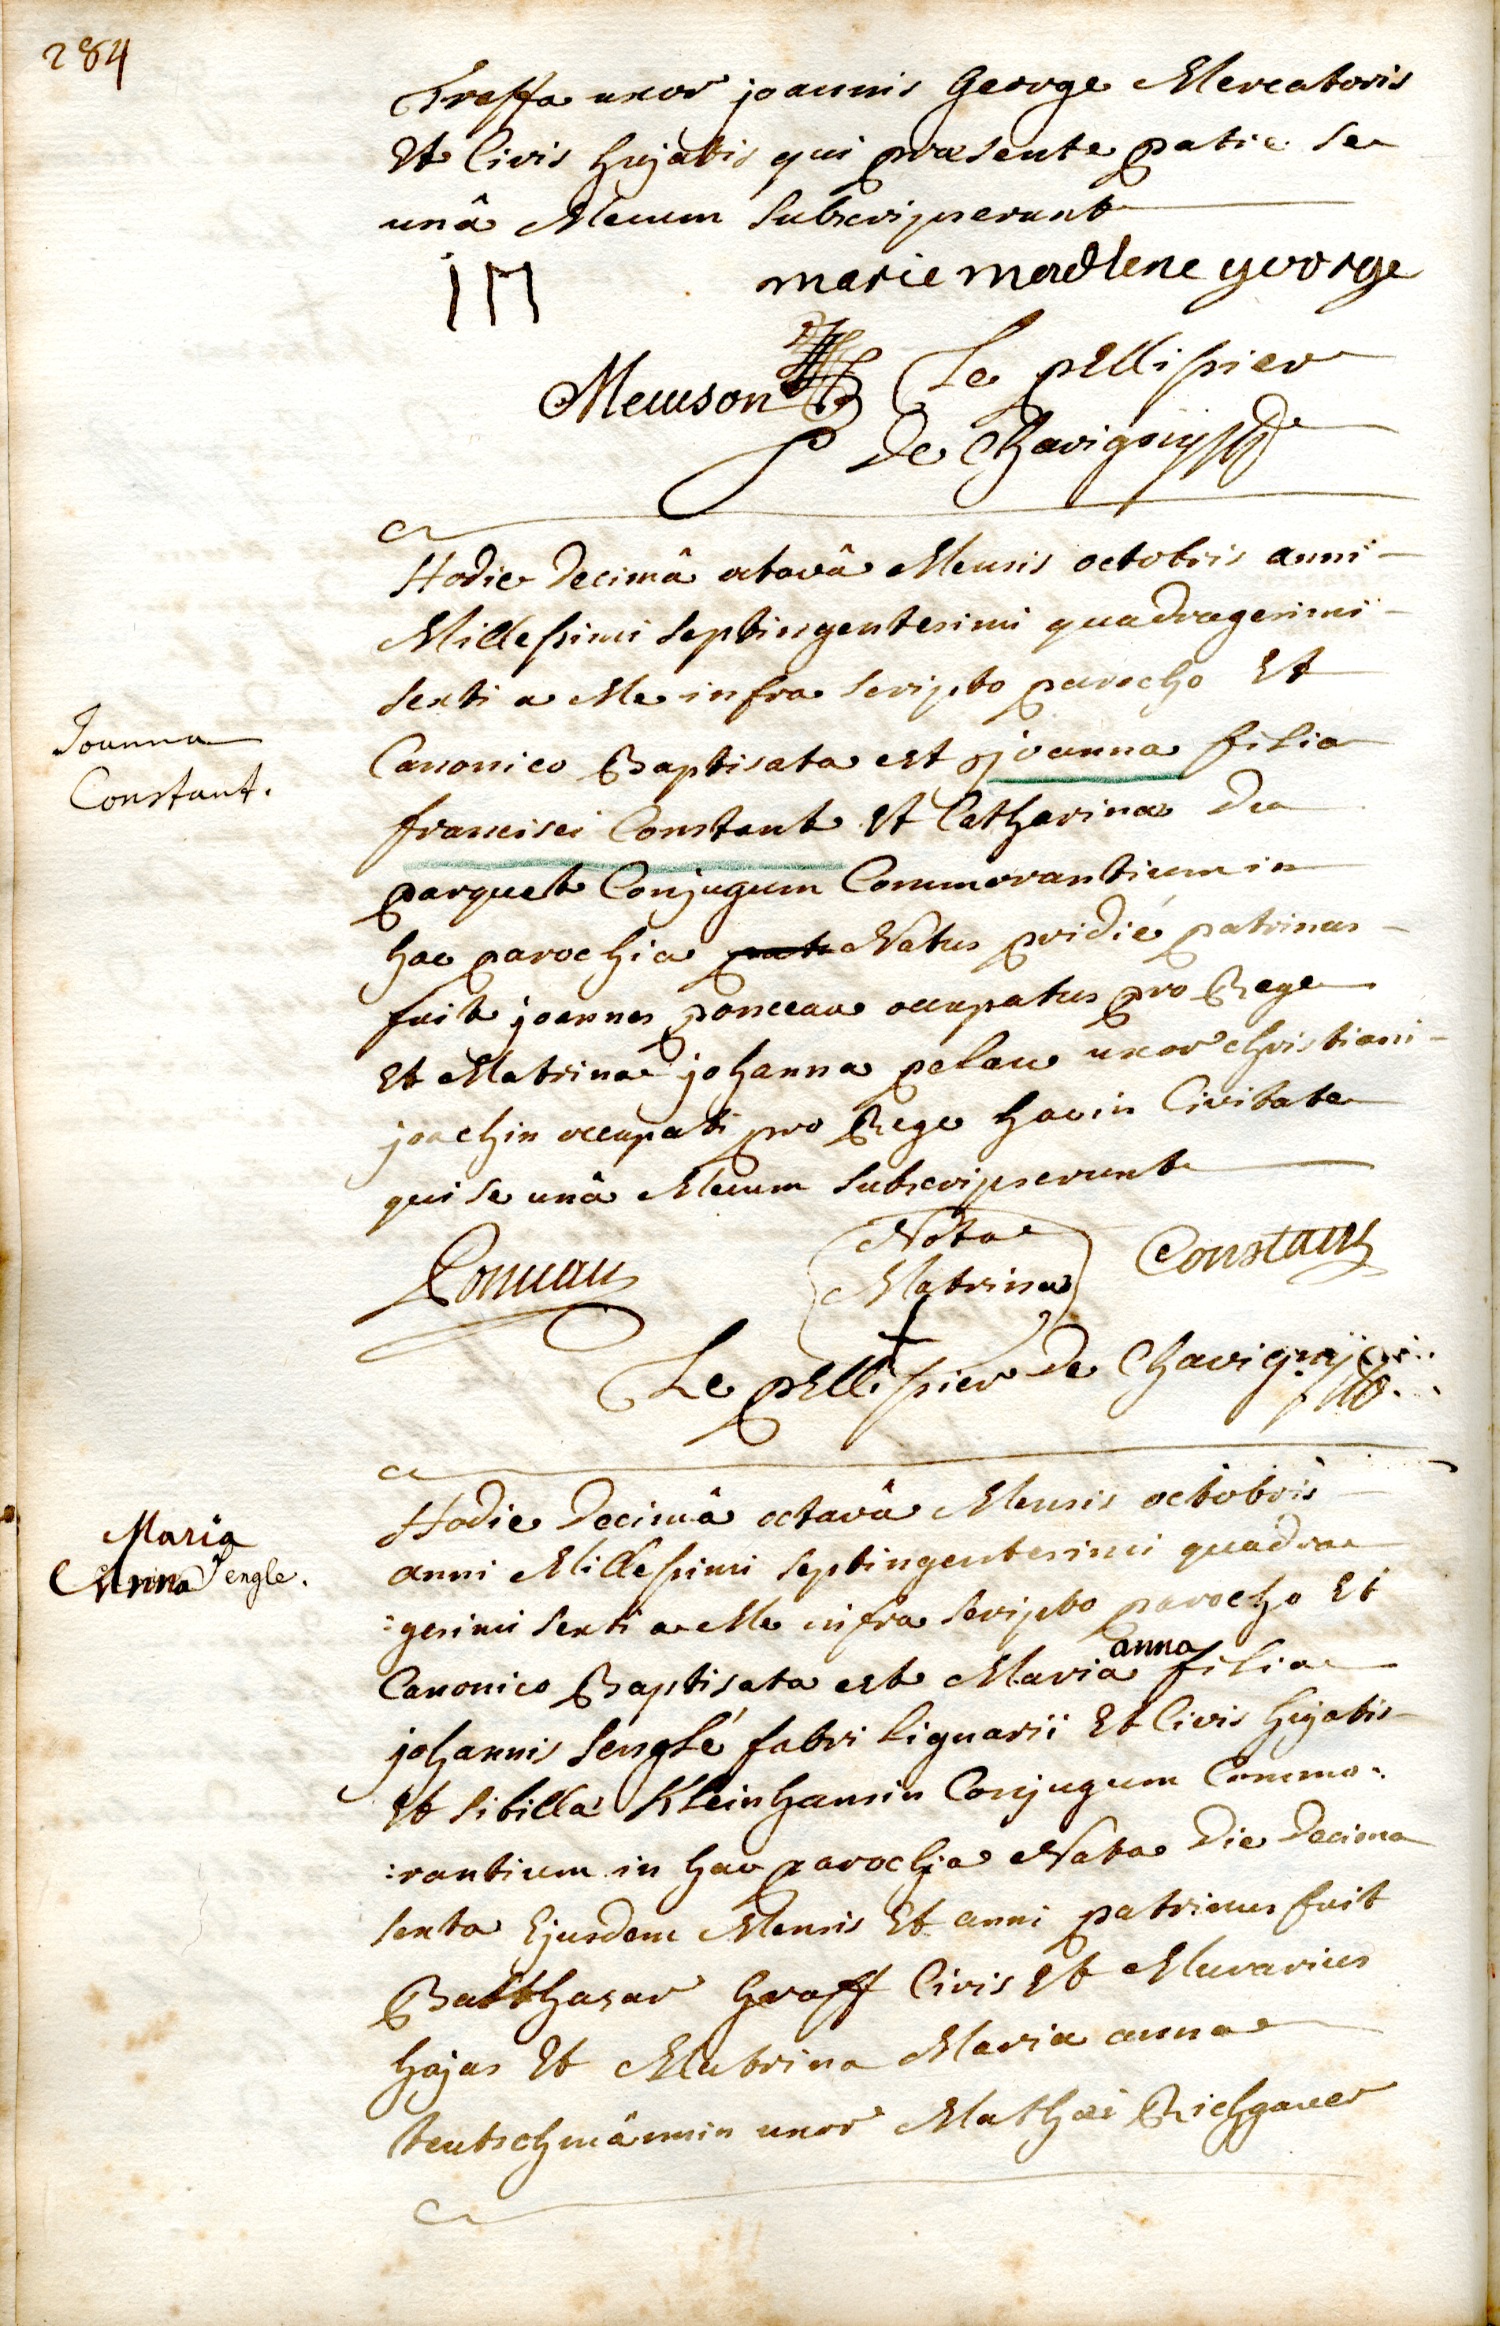 284
Treffa uxor joannis George Mercatoris
Et Civis hujatis qui præsente patre se
unâ Mecum Subscripserunt
marie madlene george
Meusson Le pellissier
De Chavigny
Hodie Decimâ octavâ Mensis octobris anni
Millesimi Septingentesimi quadragesimi
Sexti a Me infra Scripto parocho Et
Joanna
Constant.
Canonico Baptisata est joanna filia
francisci Constant Et Catharina Du
parquet Conjugum Commorantium in
hac parochia Natus pridié patrinus
fuit joannes ponceau occupatus pro Rege
Et Matrina johanna pelau uxor christiani
joachin occupati pro Rege hac in Civitate
qui se unâ Mecum Subscripserunt
Nota Constant
Matrina
Le pellissier De Chavigny
Hodie Decimâ octavâ Mensis octobris
Maria
Anna Sengle.
anni Millesimi Septingentesimi quadra
:gesimi Sexti a Me infra Scripto parocho Et
Canonico Baptisata est Maria anna filia
johannis Senglé fabri Lignarii Et Civis hujatis
Et Sibilla Kleinhansin Conjugum Commo:
:rantium in hac parochia Nata Die Decima
Sexta Ejusdem Mensis Et anni patrinus fuit
Balthasar Graff Civis Et Murarius
hujas Et Matrina Maria anna
teutschmännin uxor Mathæi Richgauer